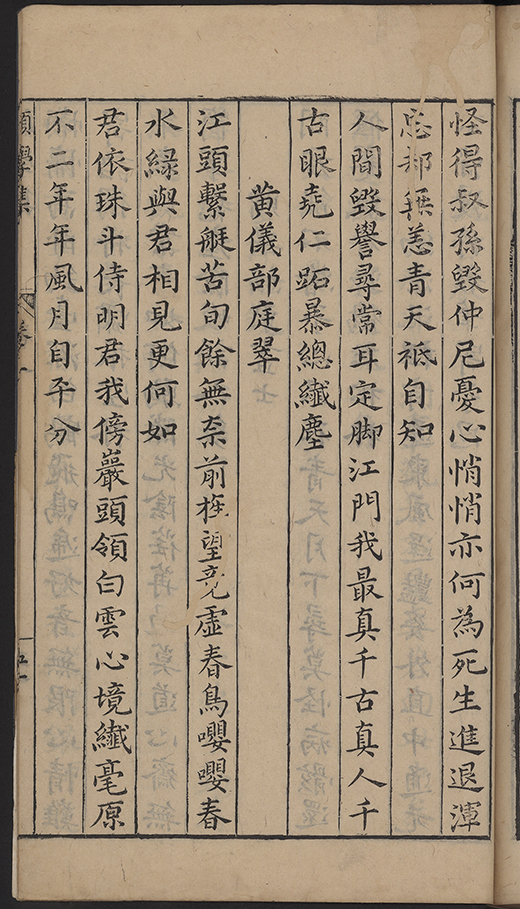 怪得叔孫毀仲尼憂心悄悄亦何為死生進退渾
忘却無恙青天祗自知
人間毀譽尋常耳定脚江門我最真千古真人千
古眼堯仁跖暴總纎塵
黄儀部庭翠
江頭繫艇苦旬餘無柰前旌望竟虛春鳥嚶嚶春
水緑與君相見更何如
君依珠斗侍明君我傍巖頭領白雲心境纎毫原
不二年年風月自平分
學集
卷